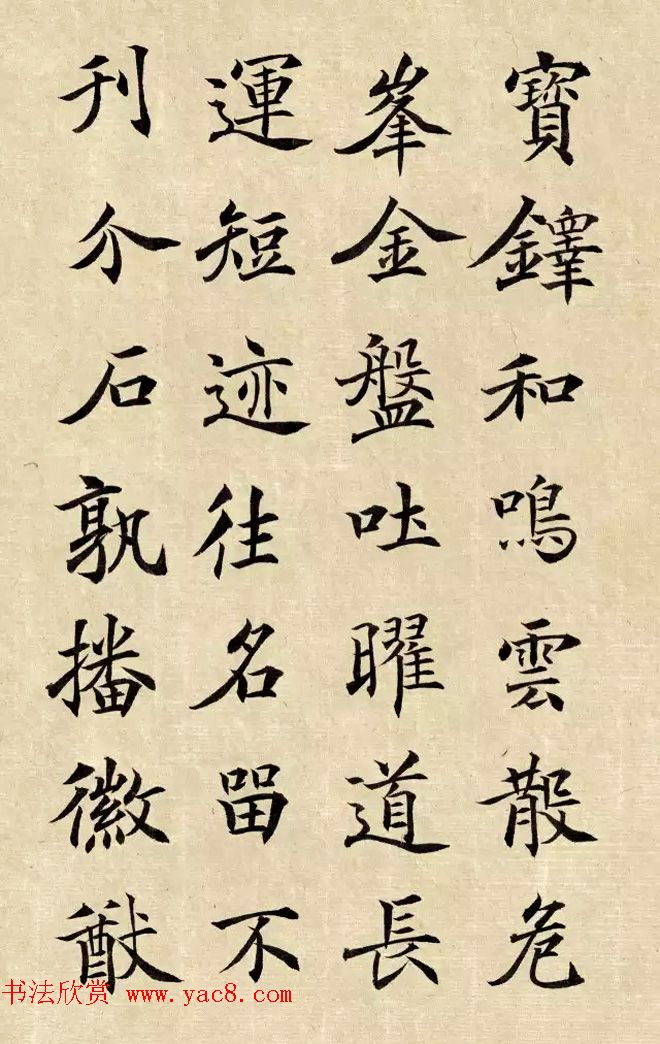 寶鐸和鳴雲散危
峯金盤吐曜道長
運短迹往名留不
刊介石孰播徽猷
书法欣赏 www.yac8.com